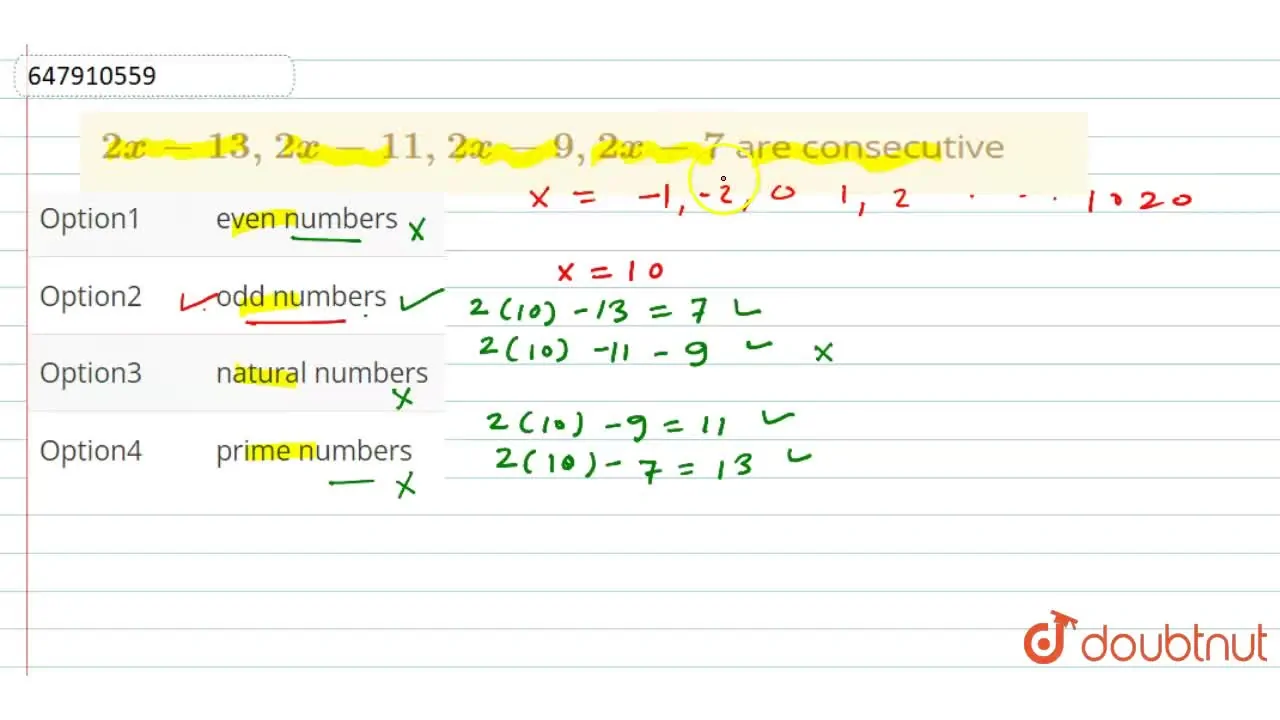 647910559
2x − 13, 2x − 11, 2x − 9, 2x − 7 are consecutive
x = -1, -2, 0 1, 2 . . . . 1020
Option1 even numbers x
x = 10
Option2 ✓ odd numbers ✓
2(10) - 13 = 7 ✓
2(10) - 11 - 9 ✓ x
Option3 natural numbers x
2(10) - 9 = 11 ✓
Option4 prime numbers x
2(10) - 7 = 13 ✓
doubtnut